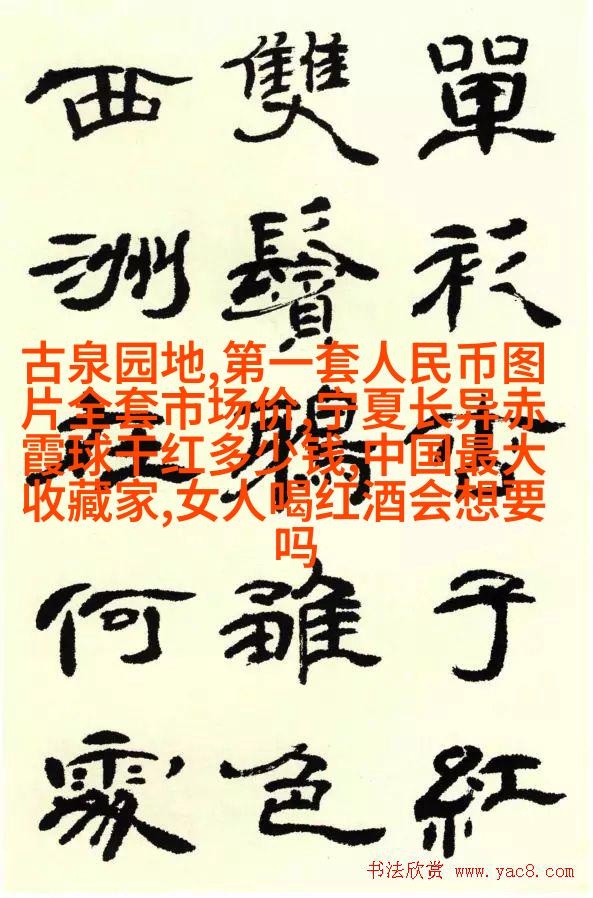 單衫子紅
雙鬢雛色
西洲何處
古泉园地,第一套人民币图
片全套市场价,宁夏长异赤
霞球干红多少钱,中国最大
收藏家,女人喝红酒会想要
吗
书法欣赏 www.yac8.com